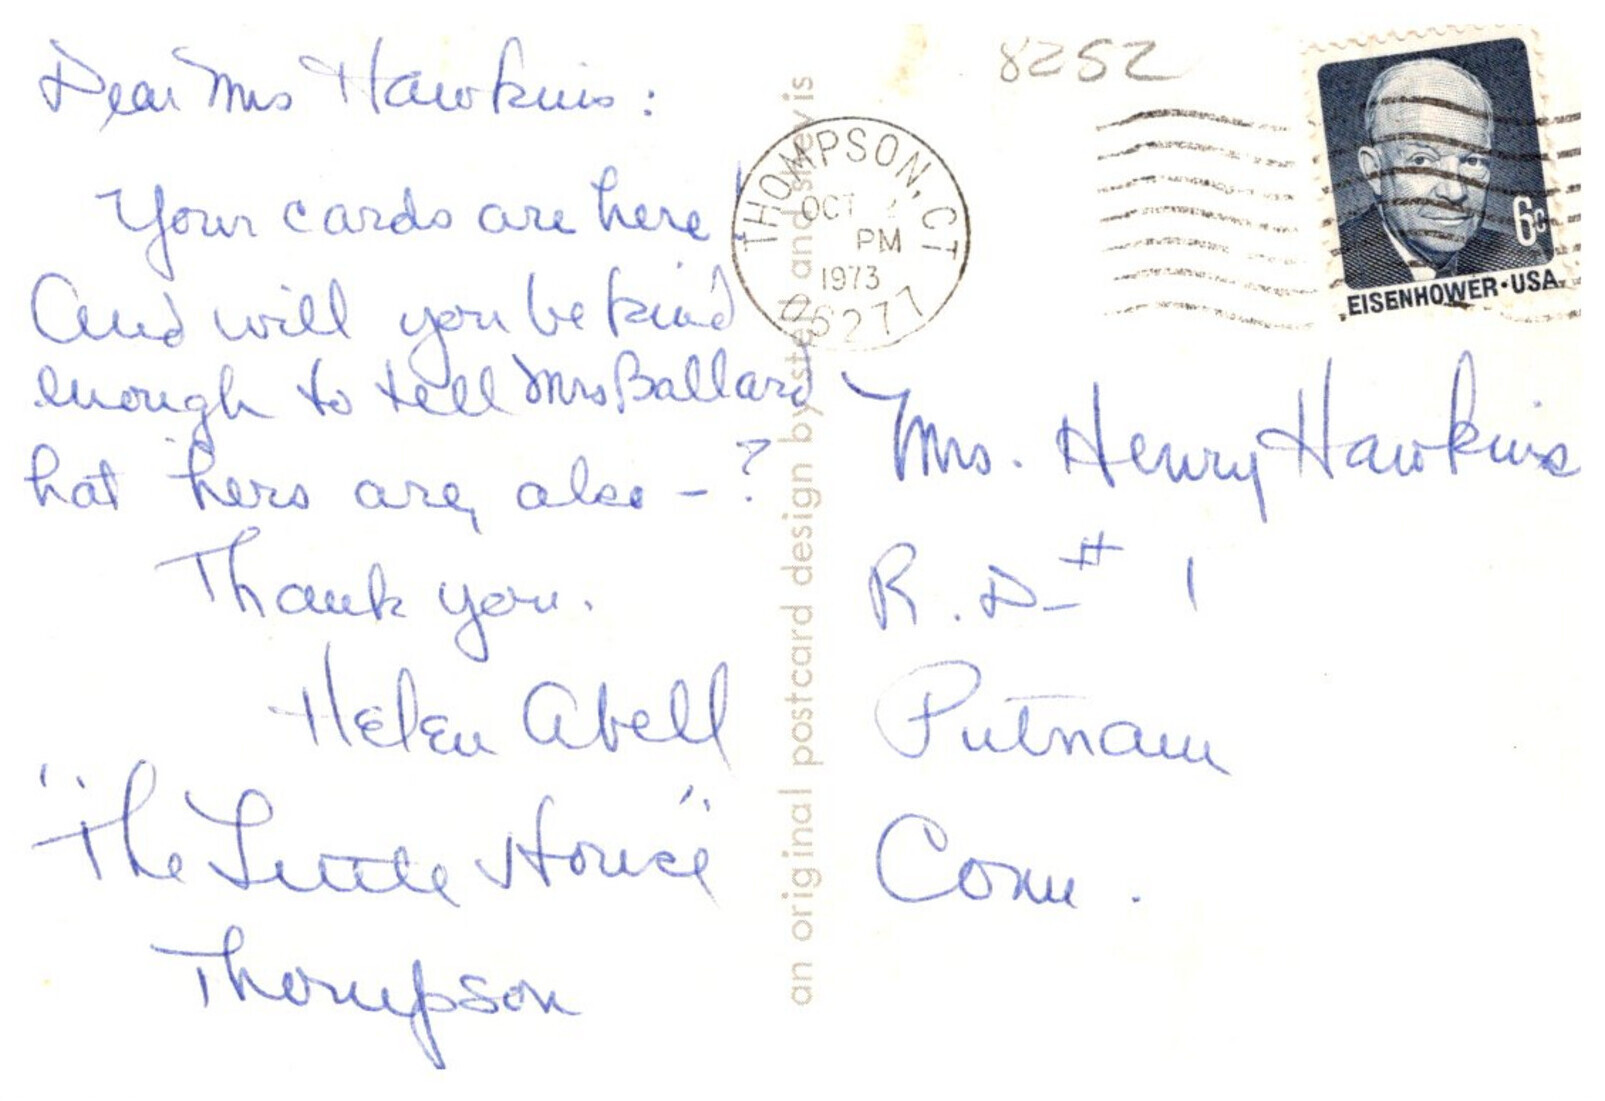 Dear Mrs Hawkins:
Your cards are here!
And will you be kind
enough to tell Mrs Ballard
hat hers are, also - ?
Thank you.
Helen Abell
"The Little House"
Thompson
an original postcard design by steph and shevis
8252
THOMPSON, CT
OCT 2
PM
1973
06277
6c
EISENHOWER·USA
Mrs. Henry Hawkins
R.D. # 1
Putnam
Conn.